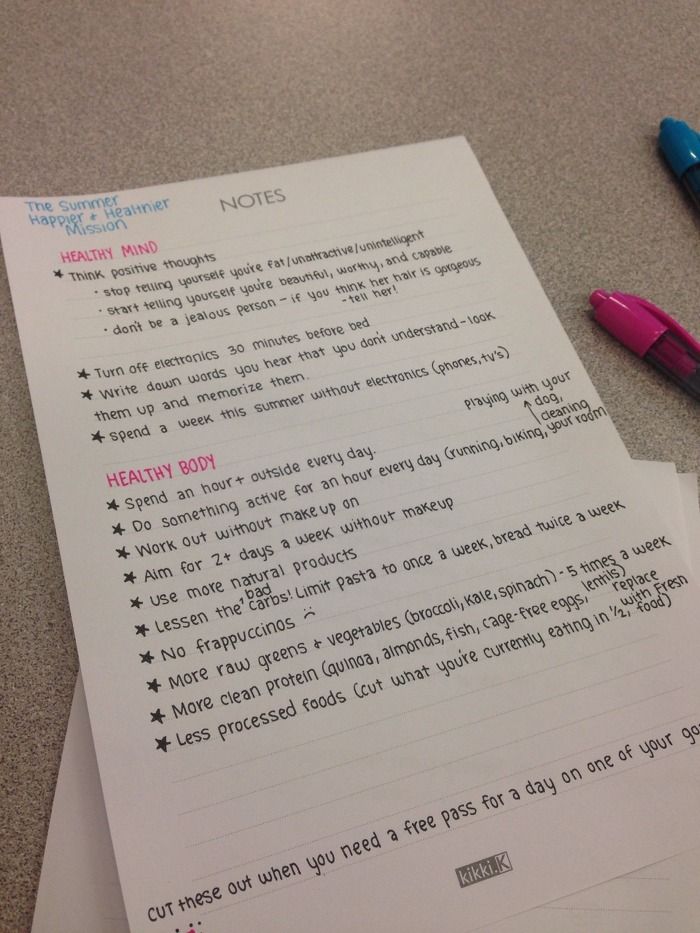 The Summer
Happier + Healthier
Mission
NOTES
HEALTHY MIND
★ Think positive thoughts
· stop telling yourself you're fat/unattractive/unintelligent
· start telling yourself you're beautiful, worthy, and capable
· don't be a jealous person - if you think her hair is gorgeous
- tell her!
★ Turn off electronics 30 minutes before bed
★ Write down words you hear that you don't understand - look
them up and memorize them.
★ Spend a week this summer without electronics (phones, tv's)
HEALTHY BODY
★ Spend an hour + outside every day.
playing with your
dog,
cleaning
★ Do something active for an hour every day (running, biking, your room
★ Work out without makeup on
★ Aim for 2+ days a week without makeup
★ Use more natural products
bad
★ Lessen the carbs! Limit pasta to once a week, bread twice a week
★ No frappuccinos ☹
★ More raw greens + vegetables (broccoli, kale, spinach) - 5 times a week
★ More clean protein (quinoa, almonds, fish, cage-free eggs, lentils)
replace
with fresh
★ Less processed foods (cut what you're currently eating in 1/2, food)
CUT these out when you need a free pass for a day on one of your
kikki.K